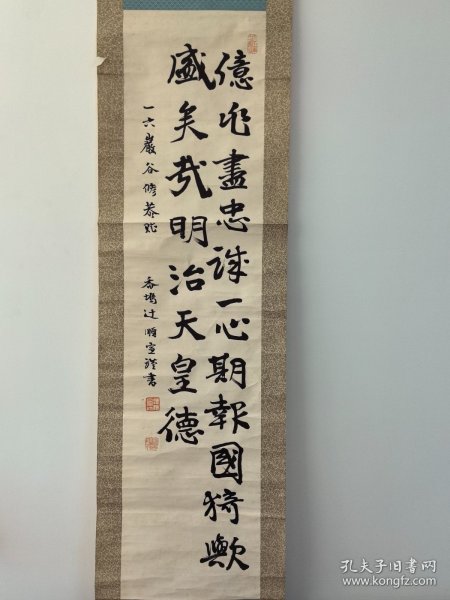 億兆盡忠誠一心期報國猗歟
盛矣哉明治天皇德
一六巖谷修恭
香墳辻順宣謹書
孔夫子旧书网
www.kongfz.com